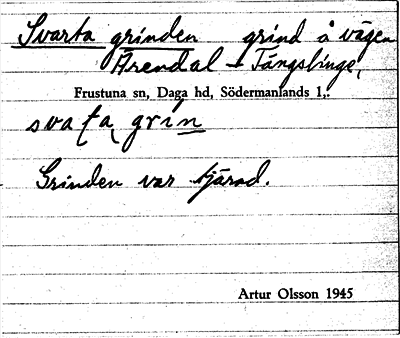 Svarta grinden grind å vägen
Ärendal - Tängslinge,
Frustuna sn, Daga hd, Södermanlands l,:
svaťa grin
Grinden var tjärad.
Artur Olsson 1945